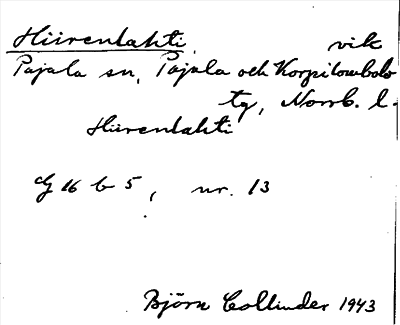 Hiirenlahti, vik
Pajala sn, Pajala och Korpilombolo
tg, Norrb. l.
Hiirenlahti
G 16 b 5, nr. 13
Björn Collinder 1943